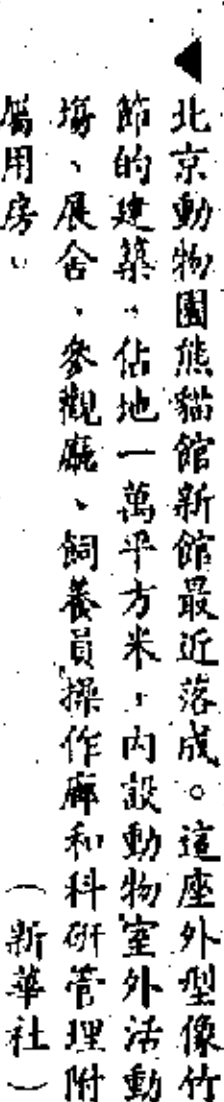 北京動物園熊貓館新館最近落成。這座外型像竹
節的建築,佔地一萬平方米,內設動物室外活動
場、展舍、參觀廳、飼養員操作廊和科研管理附
屬用房。（新華社）